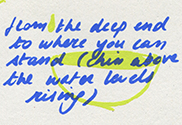 from the deep end
to where you can
stand (chin above
the water levels
rising)